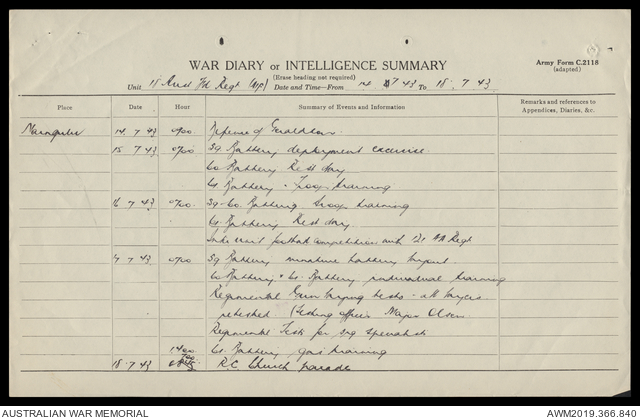 WAR DIARY or INTELLIGENCE SUMMARY
Army Form C.2118
(adapted)
(Erase heading not required)
Unit 18 Aust Fd Regt Date and Time—From 14 7 43 To 18 . 7 43
Place Date Hour Summary of Events and Information Remarks and references to Appendices, Diaries, &c.
14 . 7 43 0900 Defence of Geraldton
15 . 7 43 0700 39 Battery deployment exercise
60 Battery Rest day
61 Battery - Troop training
16 7 43 0700 39 - 60 Battery Troop training
61 Battery Rest day
Inter unit football competition with Regt
17 7 43 0700 39 Battery miniature battery
60 Battery & 61 Battery individual training
Regimental Gun laying tests - all layers
retested (Testing officer Major Olsen
Regimental Tests for specialists
1400 61 Battery gas training
18 . 7 43 R.C. Church parade
AUSTRALIAN WAR MEMORIAL AWM2019.366.840